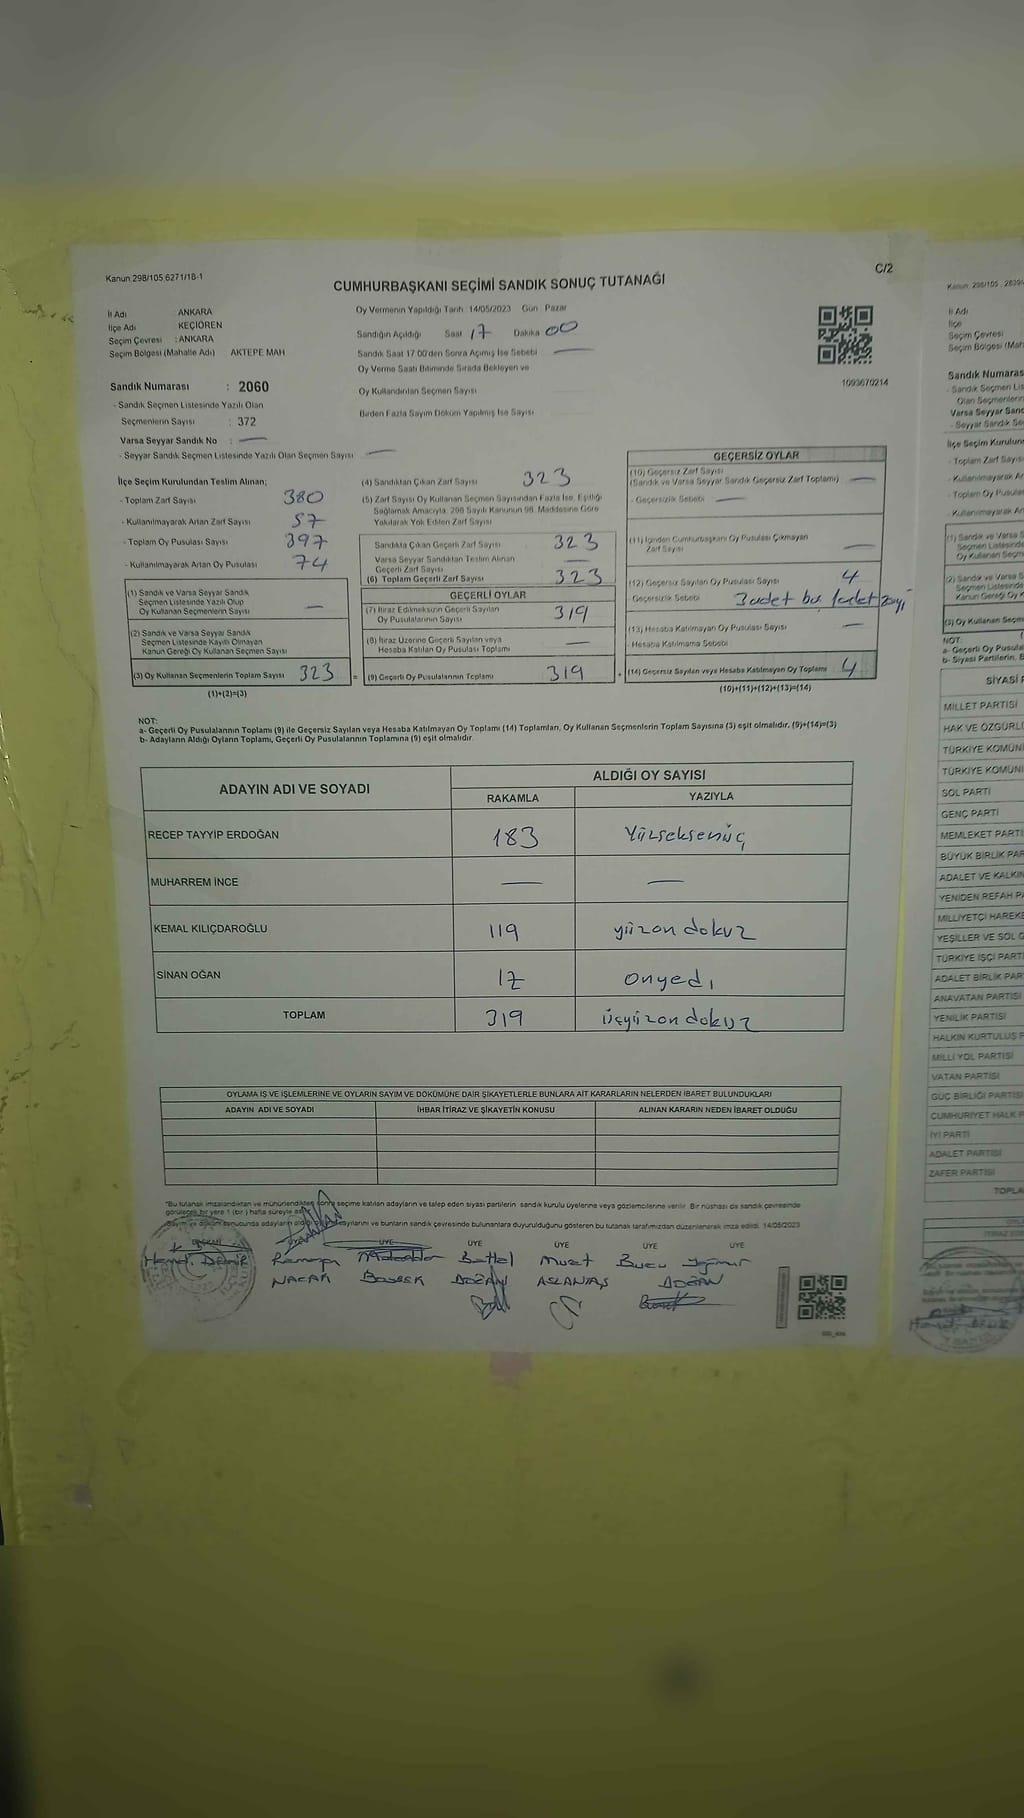 Kanun 298/105 6271/18-1
C/2
CUMHURBAŞKANI SEÇİMİ SANDIK SONUÇ TUTANAĞI
İl Adı ANKARA
İlçe Adı KEÇİÖREN
Seçim Çevresi : ANKARA
Seçim Bölgesi (Mahalle Adı) AKTEPE MAH
Sandık Numarası : 2060
- Sandık Seçmen Listesinde Yazılı Olan
Seçmenlerin Sayısı : 372
Varsa Seyyar Sandık No : —
- Seyyar Sandık Seçmen Listesinde Yazılı Olan Seçmen Sayısı —
Oy Vermenin Yapıldığı Tarih 14/05/2023 Gün Pazar
Sandığın Açıldığı Saat 17 Dakika 00
Sandık Saat 17:00'den Sonra Açımış İse Sebebi —
Oy Verme Saati Bitiminde Sırada Bekleyen ve
Oy Kullandırılan Seçmen Sayısı
Birden Fazla Sayım Döküm Yapılmış İse Sayısı
1093670214
İlçe Seçim Kurulundan Teslim Alınan;
- Toplam Zarf Sayısı 380
- Kullanılmayarak Artan Zarf Sayısı 57
- Toplam Oy Pusulası Sayısı 397
- Kullanılmayarak Artan Oy Pusulası 74
(1) Sandık ve Varsa Seyyar Sandık
Seçmen Listesinde Yazılı Olup
Oy Kullanan Seçmenlerin Sayısı —
(2) Sandık ve Varsa Seyyar Sandık
Seçmen Listesinde Kayıtlı Olmayan
Kanun Gereği Oy Kullanan Seçmen Sayısı
(3) Oy Kullanan Seçmenlerin Toplam Sayısı 323
(1)+(2)=(3)
(4) Sandıktan Çıkan Zarf Sayısı 323
(5) Zarf Sayısı Oy Kullanan Seçmen Sayısından Fazla İse, Eşitliği
Sağlamak Amacıyla, 298 Sayılı Kanunun 98. Maddesine Göre
Yakılarak Yok Edilen Zarf Sayısı
Sandıkta Çıkan Geçerli Zarf Sayısı 323
Varsa Seyyar Sandıktan Teslim Alınan
Geçerli Zarf Sayısı —
(6) Toplam Geçerli Zarf Sayısı 323
GEÇERLİ OYLAR
(7) İtiraz Edilmeksizin Geçerli Sayılan
Oy Pusulalarının Sayısı 319
(8) İtiraz Üzerine Geçerli Sayılan veya
Hesaba Katılan Oy Pusulası Toplamı —
(9) Geçerli Oy Pusulalarının Toplamı 319
GEÇERSİZ OYLAR
(10) Geçersiz Zarf Sayısı
(Sandık ve Varsa Seyyar Sandık Geçersiz Zarf Toplamı) —
- Geçersizlik Sebebi —
(11) İçinden Cumhurbaşkanı Oy Pusulası Çıkmayan
Zarf Sayısı —
(12) Geçersiz Sayılan Oy Pusulası Sayısı 4
Geçersizlik Sebebi 3 adet boş 1 adet
(13) Hesaba Katılmayan Oy Pusulası Sayısı —
- Hesaba Katılmama Sebebi
(14) Geçersiz Sayılan veya Hesaba Katılmayan Oy Toplamı 4
(10)+(11)+(12)+(13)=(14)
NOT:
a- Geçerli Oy Pusulalarının Toplamı (9) ile Geçersiz Sayılan veya Hesaba Katılmayan Oy Toplamı (14) Toplamları, Oy Kullanan Seçmenlerin Toplam Sayısına (3) eşit olmalıdır. (9)+(14)=(3)
b- Adayların Aldığı Oyların Toplamı, Geçerli Oy Pusulalarının Toplamına (9) eşit olmalıdır.
ADAYIN ADI VE SOYADI ALDIĞI OY SAYISI
RAKAMLA YAZIYLA
RECEP TAYYIP ERDOĞAN 183 Yüzseksenüç
MUHARREM İNCE — —
KEMAL KILIÇDAROĞLU 119 yüzon dokuz
SİNAN OĞAN 17 onyedi
TOPLAM 319 üçyüzon dokuz
OYLAMA İŞ VE İŞLEMLERİNE VE OYLARIN SAYIM VE DÖKÜMÜNE DAİR ŞİKAYETLERLE BUNLARA AİT KARARLARIN NELERDEN İBARET BULUNDUKLARI
ADAYIN ADI VE SOYADI İHBAR İTİRAZ VE ŞİKAYETİN KONUSU ALINAN KARARIN NEDEN İBARET OLDUĞU
"Bu tutanak imzalandıktan ve mühürlendikten sonra seçime katılan adayların ve talep eden siyasi partilerin sandık kurulu üyelerine veya gözlemcilerine verilir. Bir nüshası da sandık çevresinde
görülecek bir yere 1 (bir) hafta süreyle
sayılarını ve bunların sandık çevresinde bulunanlara duyurulduğunu gösteren bu tutanak tarafımızdan düzenlenerek imza edildi. 14/05/2023
BAŞKAN ÜYE ÜYE ÜYE ÜYE ÜYE ÜYE
DEMİR Murat Burcu
DOĞAN ASLANTAŞ DOĞAN
İl Adı
İlçe
Seçim Çevresi
Sandık Numarası
SİYASİ
MİLLET PARTİSİ
HAK VE ÖZGÜRL
TÜRKİYE KOMÜNİ
TÜRKİYE KOMÜNİ
SOL PARTİ
GENÇ PARTİ
MEMLEKET PARTİ
BÜYÜK BİRLİK PAR
ADALET VE KALKIN
YENİDEN REFAH PA
MİLLİYETÇİ HAREKE
YEŞİLLER VE SOL G
TÜRKİYE İŞÇİ PARTİ
ADALET BİRLİK PAR
ANAVATAN PARTİSİ
YENİLİK PARTİSİ
HALKIN KURTULUŞ P
MİLLİ YOL PARTİSİ
VATAN PARTİSİ
GÜÇ BİRLİĞİ PARTİSİ
CUMHURİYET HALK P
İYİ PARTİ
ADALET PARTİSİ
ZAFER PARTİSİ
TOPLA